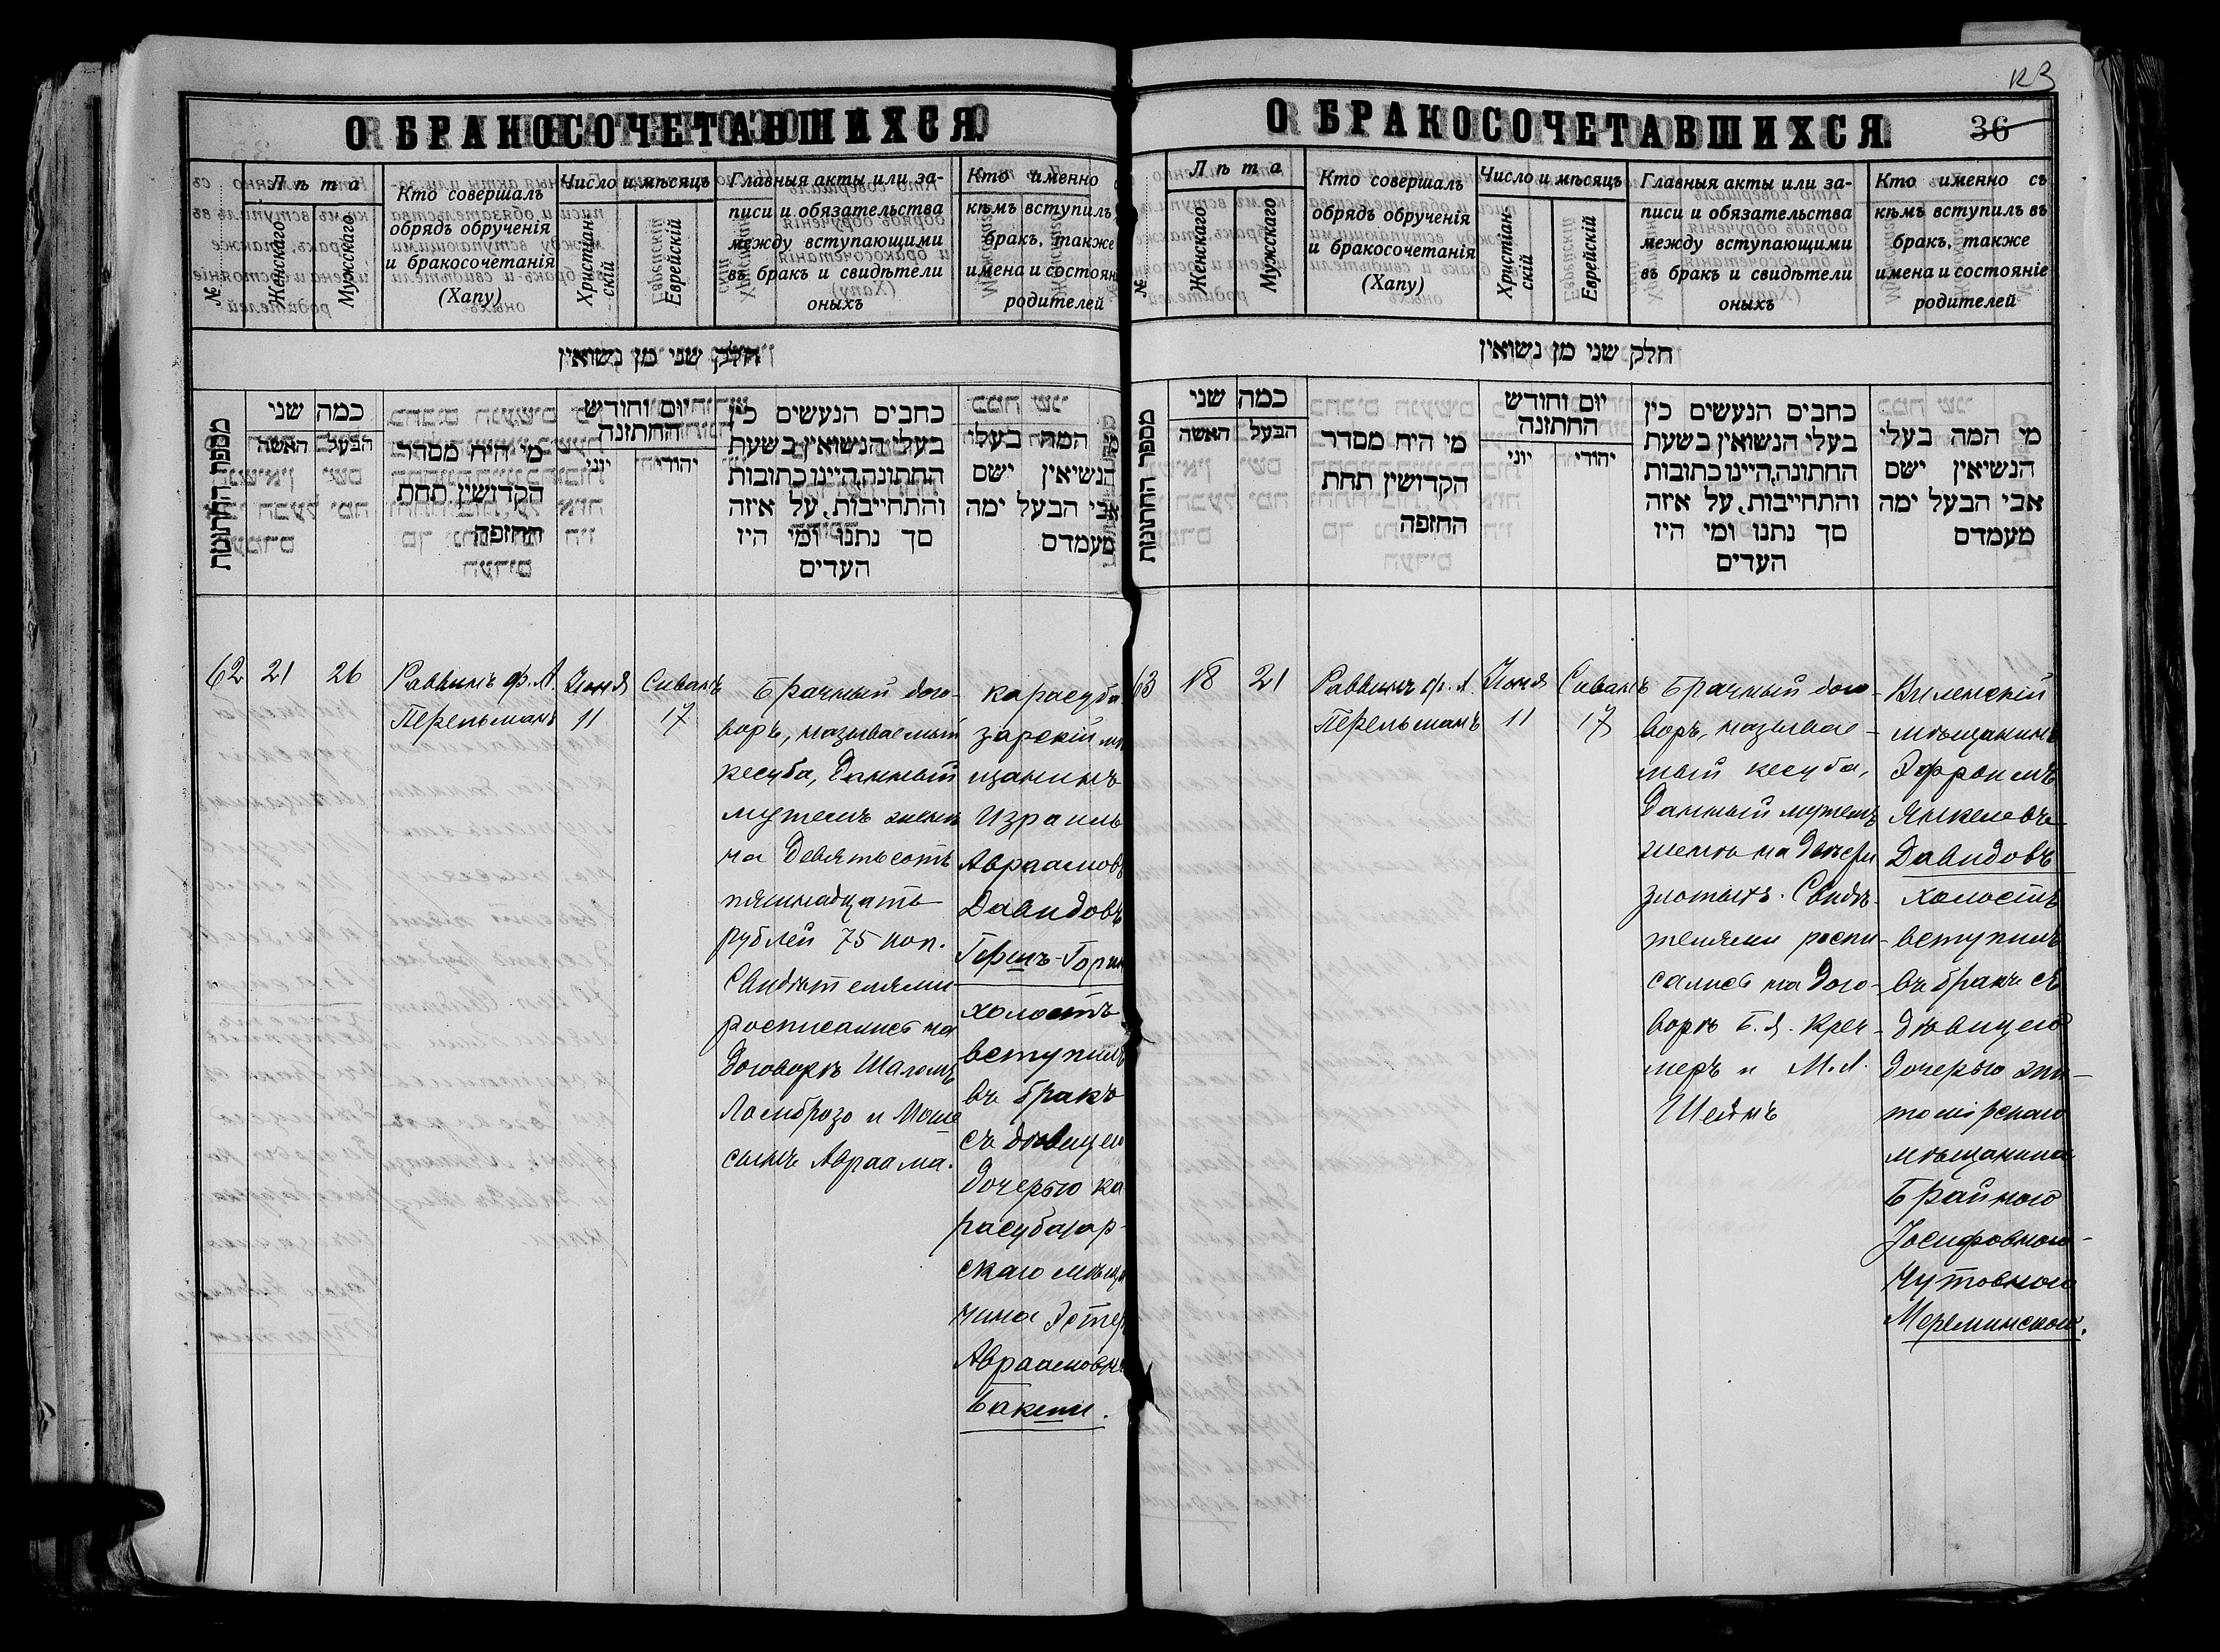 123
О БРАКОСОЧЕТАВШИХСЯ.
№
Лѣта
Женскаго
Мужскаго
Кто совершалъ
обрядъ обрученія
и бракосочетанія
(Хапу)
Число и мѣсяцъ
Христіан-
скій
Еврейскій
Главныя акты или за-
писи и обязательства
между вступающими
въ бракъ и свидѣтели
оныхъ
Кто именно
кѣмъ вступилъ
бракъ, также
имена и состоян
родителей
חלק שני מן נשואין
מספר החתונות
כמה שני
הבעל האשה
מי היח מסדר
הקדושין תחת
החופה
יום וחודש
החתונה
יהודי יוני
כתבים הנעשים כין
בעלי הנשואין בשעת
החתונה, היינו כתובות
והתחייבות, על איזה
סך נתנו ומי היו
העדים
מי המה בעלי
הנשיאין ושם
אבי הבעל ימה
מעמדם
62
21
26
Раввинъ ф. А.
Перельманъ
Іюня
11
Сиванъ
17
Брачный дого-
воръ, называемый
кесуба, данный
мужемъ женѣ
на девятьсотъ
пятнадцать
рублей 75 коп.
Свидѣтелями
росписались на
договорѣ Шаломъ
Ломброзо и Моше
сынъ Авраама.
Карасуба
зарскій мѣ
щанинъ
Израиль
Авраамовъ
Давидовъ
холостъ
вступилъ
въ бракъ
съ дѣвицею
дочерью ка
расубазар-
скаго мѣща
нина Эстер
Авраамовно
Бакши.
О БРАКОСОЧЕТАВШИХСЯ.
36
№
Лѣта
Женскаго
Мужскаго
Кто совершалъ
обрядъ обрученія
и бракосочетанія
(Хапу)
Число и мѣсяцъ
Христіан-
скій
Еврейскій
Главныя акты или за-
писи и обязательства
между вступающими
въ бракъ и свидѣтели
оныхъ
Кто именно съ
кѣмъ вступилъ въ
бракъ, также
имена и состояніе
родителей
חלק שני מן נשואין
מספר החתונות
כמה שני
הבעל האשה
מי היח מסדר
הקדושין תחת
החופה
יום וחודש
החתונה
יהודי יוני
כתבים הנעשים כין
בעלי הנשואין בשעת
החתונה, היינו כתובות
והתחייבות, על איזה
סך נתנו ומי היו
העדים
מי המה בעלי
הנשיאין ושם
אבי הבעל ימה
מעמדם
63
18
21
Раввинъ ф. А.
Перельманъ
Іюня
11
Сиванъ
17
Брачный дого-
воръ, называе-
мый кесуба,
данный мужемъ
женѣ на двѣсти
злотыхъ. Свидѣ-
телями роспи-
сались на дого-
ворѣ Б. Я. Кре
меръ и М. Л.
Шейнъ
Виленскій
мѣщанинъ
Эфроимъ
Янкелевъ
Давидовъ
холостъ
вступилъ
въ бракъ съ
дѣвицею
дочерью жи-
томірскаго
мѣщанина
Брайною
Іосифовною-
Нутовною
Мереминскою.